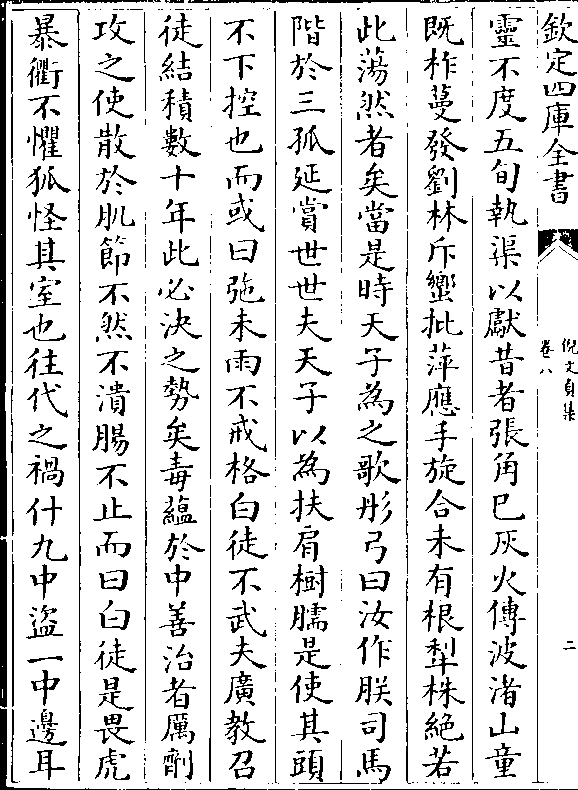 欽定四庫全書
倪文貞集
卷八
二
靈不度五旬執渠以獻昔者張角巳灰火傳波渚山童
既柞蔓發劉林斥蠁批萍應手旋合未有根犁株絶若
此蕩然者矣當是時天子為之歌彤弓曰汝作朕司馬
階於三孤延賞世世夫天子以為扶肩樹臑是使其頭
不下控也而或曰弛未雨不戒格白徒不武夫廣教召
徒結積數十年此必決之勢矣毒藴於中善治者厲劑
攻之使散於肌節不然不潰腸不止而曰白徒是畏虎
暴衢不懼狐怪其室也往代之禍什九中盜一中邊耳